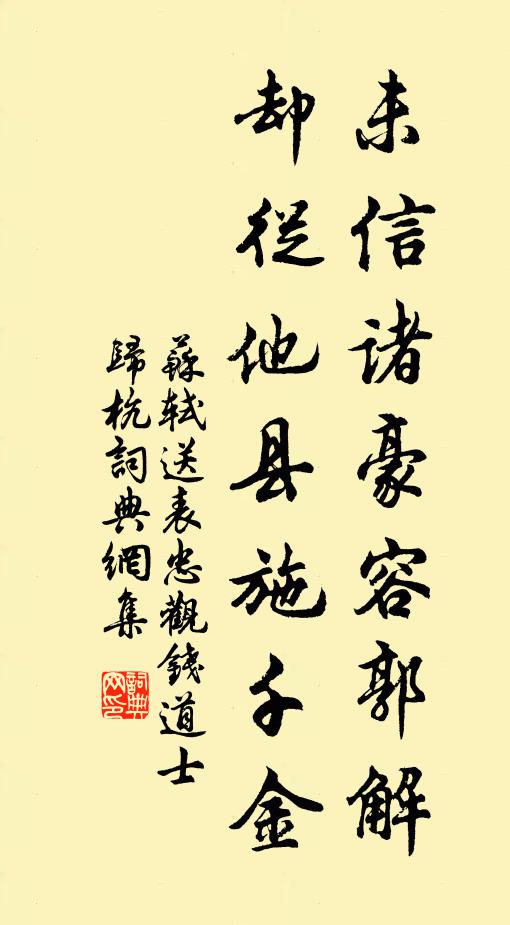 未信諸豪容郭解
却從他县施千金
蘇軾送表忠觀錢道士
歸杭詞典網集
詞典
网印